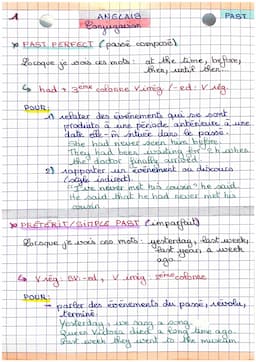 1
ANGLAIS
PAST
Conjugaison
PAST PERFECT (passé composé)
Lorsque je vois ces mots: at the time, before,
then, until then
had + 3ème colonne V.irrég / -ed: V rég.
POUR:
1) relater des événements qui se sont
produits à une période antérieure à une
date elle-m située dans le passé.
She had never seen him before.
They had been waiting for 2h when
the doctor finally arrived.
2) rapporter un événement ou discours
(style indirect)
"I've never met his cousin" he said
He said that he had never met his
cousin
PRÉTÉRIT/SIMPLE PAST (imparfait)
Lorsque je vois ces mots: yesterday, last week,
last year, a week
ago.
V rég: BV-ed, V irrég: 2ème colonne
POUR:
- parler des événements du passé, révolu,
terminé.
Yesterday, we sang a song.
Queen Victoria died a long time ago.
Last week they went to the museum.